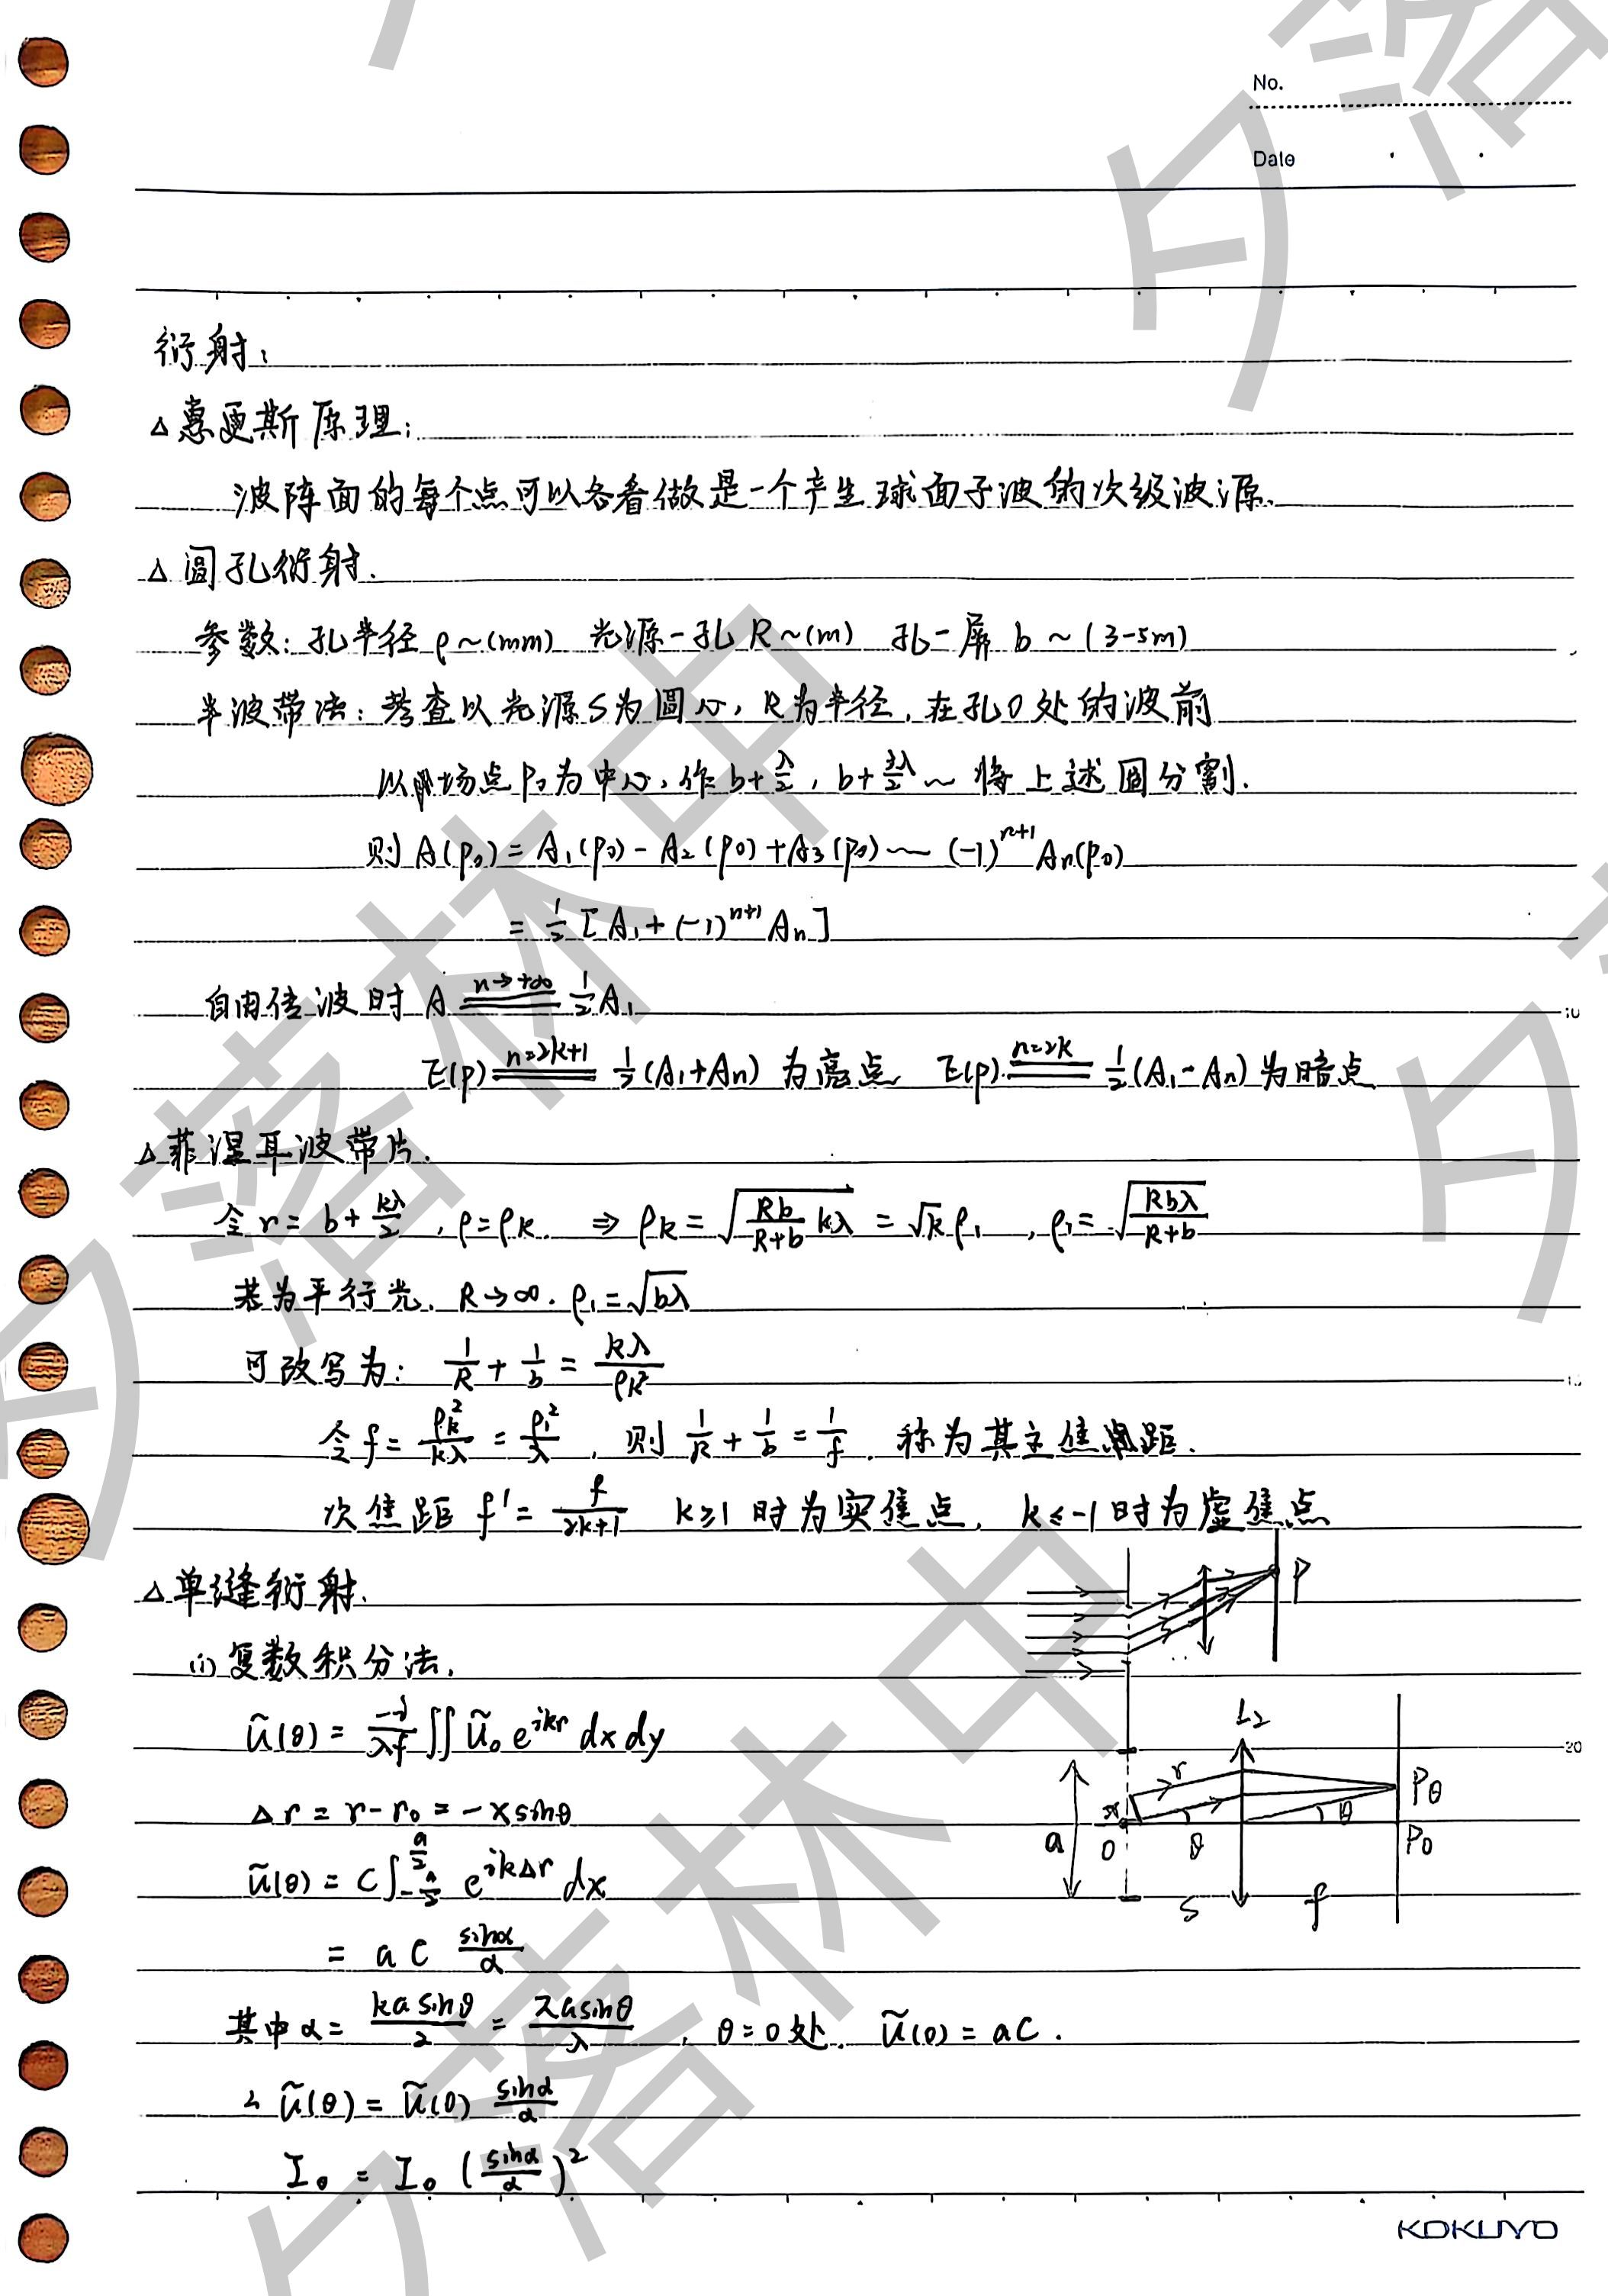 No.
Date
衍射:
△惠更斯原理:
波阵面的每个点可以各看做是一个产生球面子波的次级波源.
△圆孔衍射.
参数: 孔半径 ρ~(mm) 光源-孔 R~(m) 孔-屏 b~(3-5m)
半波带法: 考查以光源S为圆心, R为半径, 在孔O处的波前
以场点P₀为中心, 作 b+λ/2, b+2λ/2 ~ 将上述圆分割.
则 A(P₀) = A₁(P₀) - A₂(P₀) + A₃(P₀) ~ (-1)ⁿ⁺¹ Aₙ(P₀)
= 1/2 [A₁ + (-1)ⁿ⁺¹ Aₙ]
10
自由传波时 A =(n→+∞)= 1/2 A₁
E(p) =(n=2k+1)= 1/2 (A₁+Aₙ) 为亮点 E(p) =(n=2k)= 1/2 (A₁-Aₙ) 为暗点
△菲涅耳波带片.
令 r = b + kλ/2, ρ=ρₖ. ⇒ ρₖ = √(Rb/(R+b) kλ) = √k ρ₁, ρ₁ = √(Rbλ/(R+b))
若为平行光. R→∞. ρ₁=√(bλ)
可改写为: 1/R + 1/b = kλ/ρₖ²
令 f = ρₖ²/kλ = ρ₁²/λ, 则 1/R + 1/b = 1/f. 称为其主焦距.
次焦距 f' = f/(2k+1) k≥1 时为实焦点, k≤-1 时为虚焦点
△单缝衍射.
P
(1) 复数积分法.
ũ(θ) = -i/λf ∬ ũ₀ e^{ikr} dx dy
L₂
20
Δr = r - r₀ = -x sinθ
r
Pθ
x
a
O
θ
θ
P₀
ũ(θ) = C ∫_{-a/2}^{a/2} e^{ikΔr} dx
S
f
= a C sinα/α
其中 α = ka sinθ/2 = πa sinθ/λ, θ=0处. ũ(0) = aC.
∴ ũ(θ) = ũ(0) sinα/α
Iθ = I₀ (sinα/α)²
KOKUYO
夕落林中
夕落林中